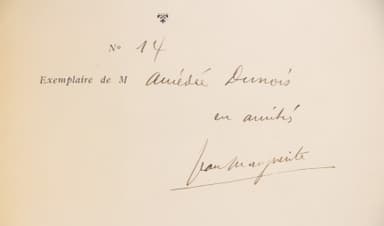 N° 14
Exemplaire de M Amédée Dunois
en amitié
Jean Marguerite